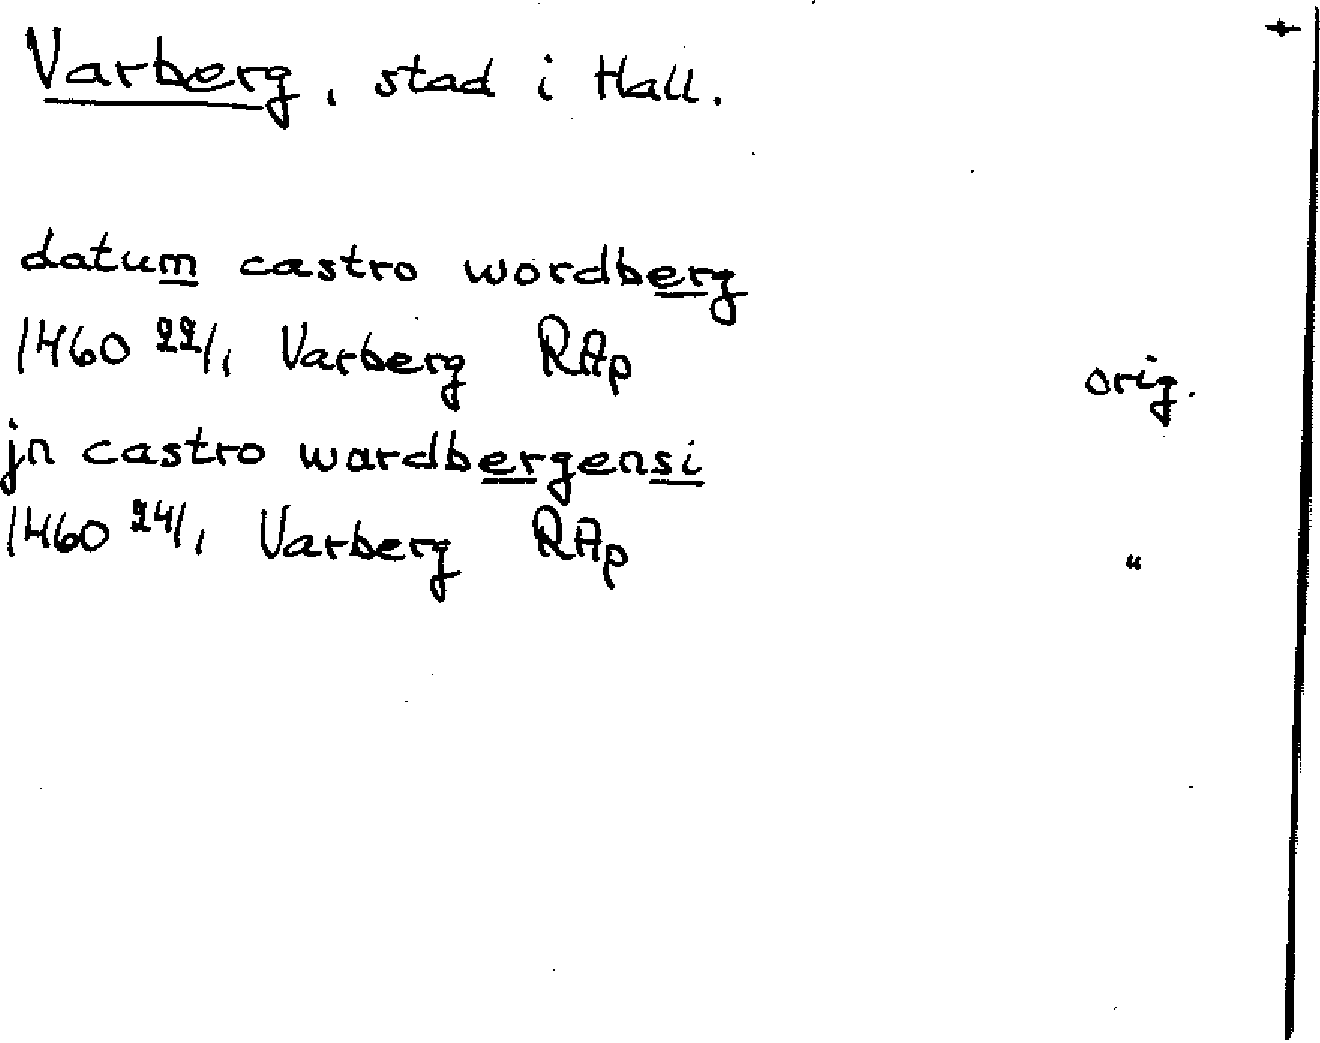 +
Varberg, stad i Hall.
datum castro wordberg
1460 22/1 Varberg RAp orig.
jn castro wardbergensi
1460 24/1 Varberg RAp "